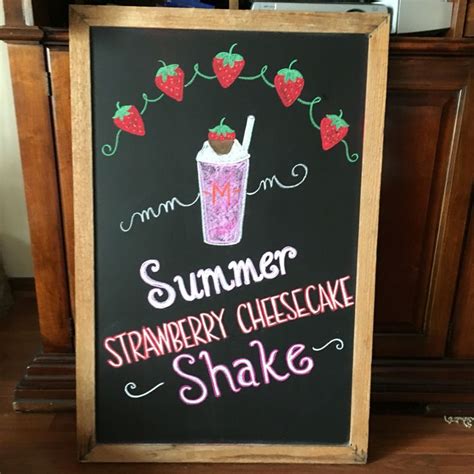 mm M m
Summer
STRAWBERRY CHEESECAKE
Shake